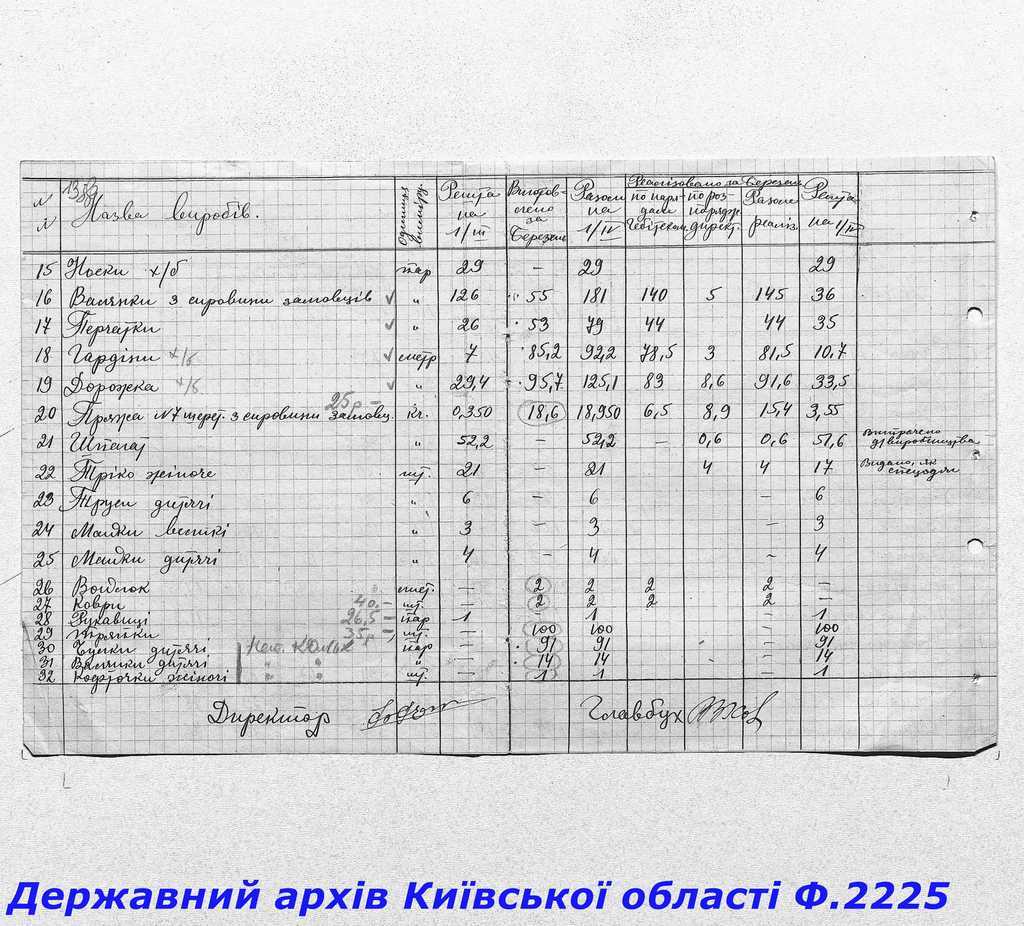 № № Назва виробів. одиниця виміру. Решта на 1/III Виготовлено за Березень Разом на 1/IV Реалізовано за Березень по нарядам по розпорядж. дирекц. Разом реаліз. Решта на 1/IV
15 Носки х/б пар 29 – 29 29
16 Валянки з сировини замовців ✓ " 126 55 181 140 5 145 36
17 Перчатки ✓ " 26 53 79 44 44 35
18 Гардіни х/б ✓ метр 7 85,2 92,2 78,5 3 81,5 10,7
19 Дорожка х/б ✓ " 29,4 95,7 125,1 83 8,6 91,6 33,5
25р –
20 Пряжа №7 шерст. з сировини замовц. кг. 0,350 18,6 18,950 6,5 8,9 15,4 3,55
21 Шпагат " 52,2 – 52,2 – 0,6 0,6 51,6 Витрачено д/виробництва
22 Тріко жіноче шт. 21 – 21 4 4 17 Видано, як спецодяг
23 Труси дитячі " 6 – 6 – 6
24 Майки великі " 3 – 3 – 3
25 Майки дитячі " 4 – 4 – 4
26 Войлок мет. – 2 2 2 2 –
27 Коври 40. – шт. – 2 2 2 2 –
28 Рукавиці 26,5 – пар 1 – 1 – 1
29 35р – шт. – 100 100 – 100
30 дитячі пар – 91 91 – 91
31 Валянки дитячі " " " – 14 14 – 14
32 Кофточки жіночі " " шт. – 1 1 – 1
Директор Главбух
Державний архів Київської області Ф.2225